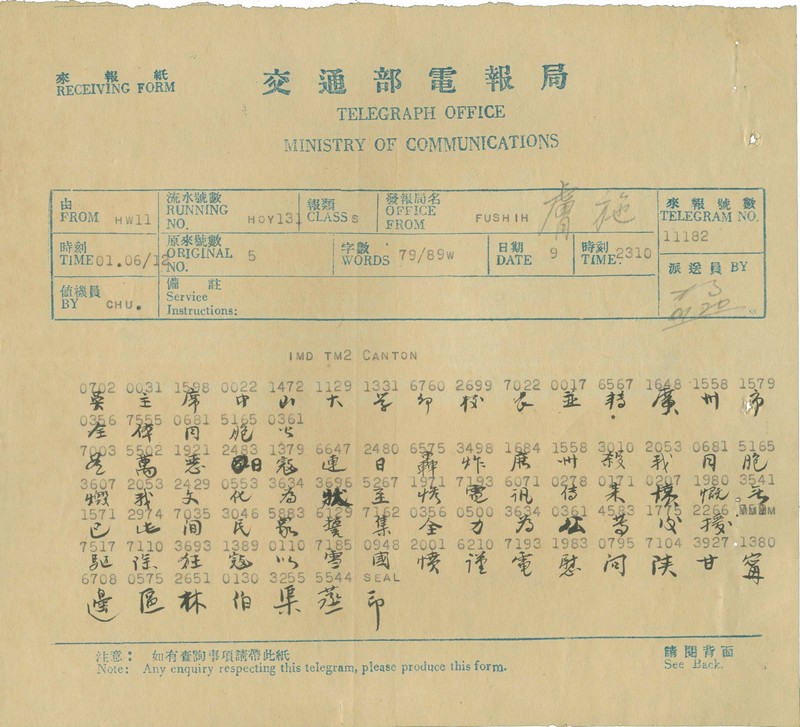 來報紙
RECEIVING FORM
交通部電報局
TELEGRAPH OFFICE
MINISTRY OF COMMUNICATIONS
由 FROM HW11 流水號數 RUNNING NO. HOY131 報類 CLASS S 發報局名 OFFICE FROM FUSHIH 膚施 來報號數 TELEGRAM NO. 11182
時刻 TIME 01.06/12 原來號數 ORIGINAL NO. 5 字數 WORDS 79/89W 日期 DATE 9 時刻 TIME: 2310 派送員 BY
值機員 BY CHU. 備註 Service Instructions:
IMD TM2 CANTON
0702 0031 1598 0022 1472 1129 1331 6760 2699 7022 0017 6567 1648 1558 1579
吳主席中山大學鄒校長並轉廣州市
0356 7555 0681 5165 0361
全體同胞公
7003 5502 1921 2483 1379 6647 2480 6575 3498 1684 1558 3010 2053 0681 5165
鑒萬惡日寇連日轟炸廣州殺我同胞
3607 2053 2429 0553 3634 3696 5267 1971 7193 6071 0278 0171 0207 1980 3541
燬我文化為狀至慘電訊傳來憤慨無
1571 2974 7035 3046 5883 6129 7162 0356 0500 3634 0361 4583 1775 2266
已此間民眾集全力為公等後援
7517 7110 3693 1389 0110 7185 0948 2001 6210 7193 1983 0795 7104 3927 1380
驅除狂寇以雪國憤謹電慰問陝甘寧
6708 0575 2651 0130 3255 5544 SEAL
邊區林伯渠蒸印
注意：如有查詢事項請帶此紙
Note: Any enquiry respecting this telegram, please produce this form.
請閱背面
See Back.